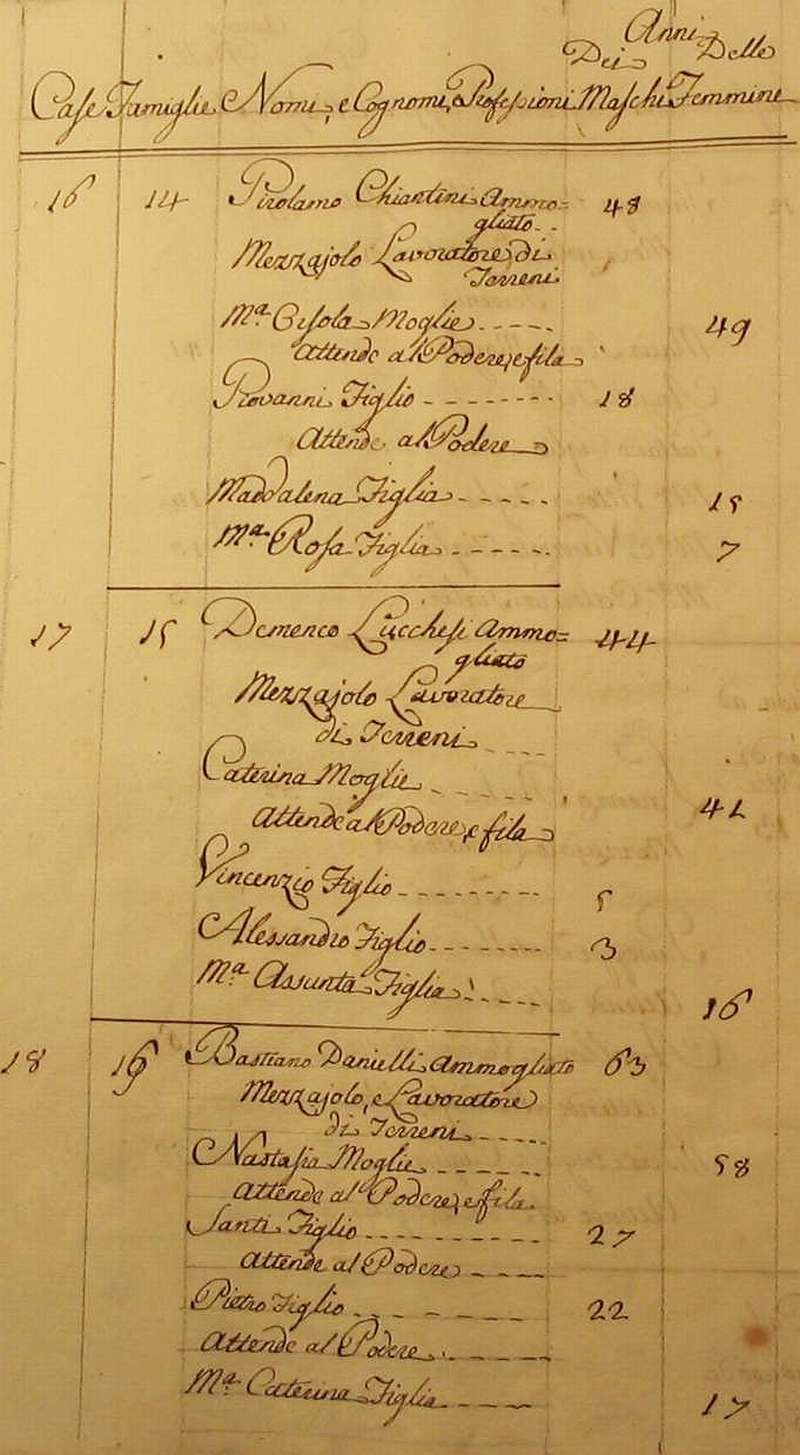 Anni
Dei Dello
Case Famiglie Nomi, e Cognomi, e Professioni Maschi Femmine
16 14 Girolamo Chiantini Ammo= 48
gliato
Mezzajolo Lavoratore di
Terreni
Ma. Gesola Moglie 49
attende al Podere, e fila
Giovanni Figlio 18
Attende al Podere
Maddalena Figlia 15
Ma. Rosa Figlia 7
17 15 Domenco Lucchesi Ammo= 44
gliato
Mezzajolo Lavoratore
di Terreni
Caterina Moglie
attende al Podere, e fila 42
Vincenzio Figlio 5
Alessandro Figlio 3
Ma. Assunta Figlia 16
18 16 Bastiano Danielli Ammogliato 63
Mezzajolo, e Lavoratore
di Terreni
Nastasia Moglie 58
attende al Podere, e fila
Santi Figlio 27
attende al Podere
Pietro Figlio 22
Attende al Podere
Ma. Caterina Figlia 17